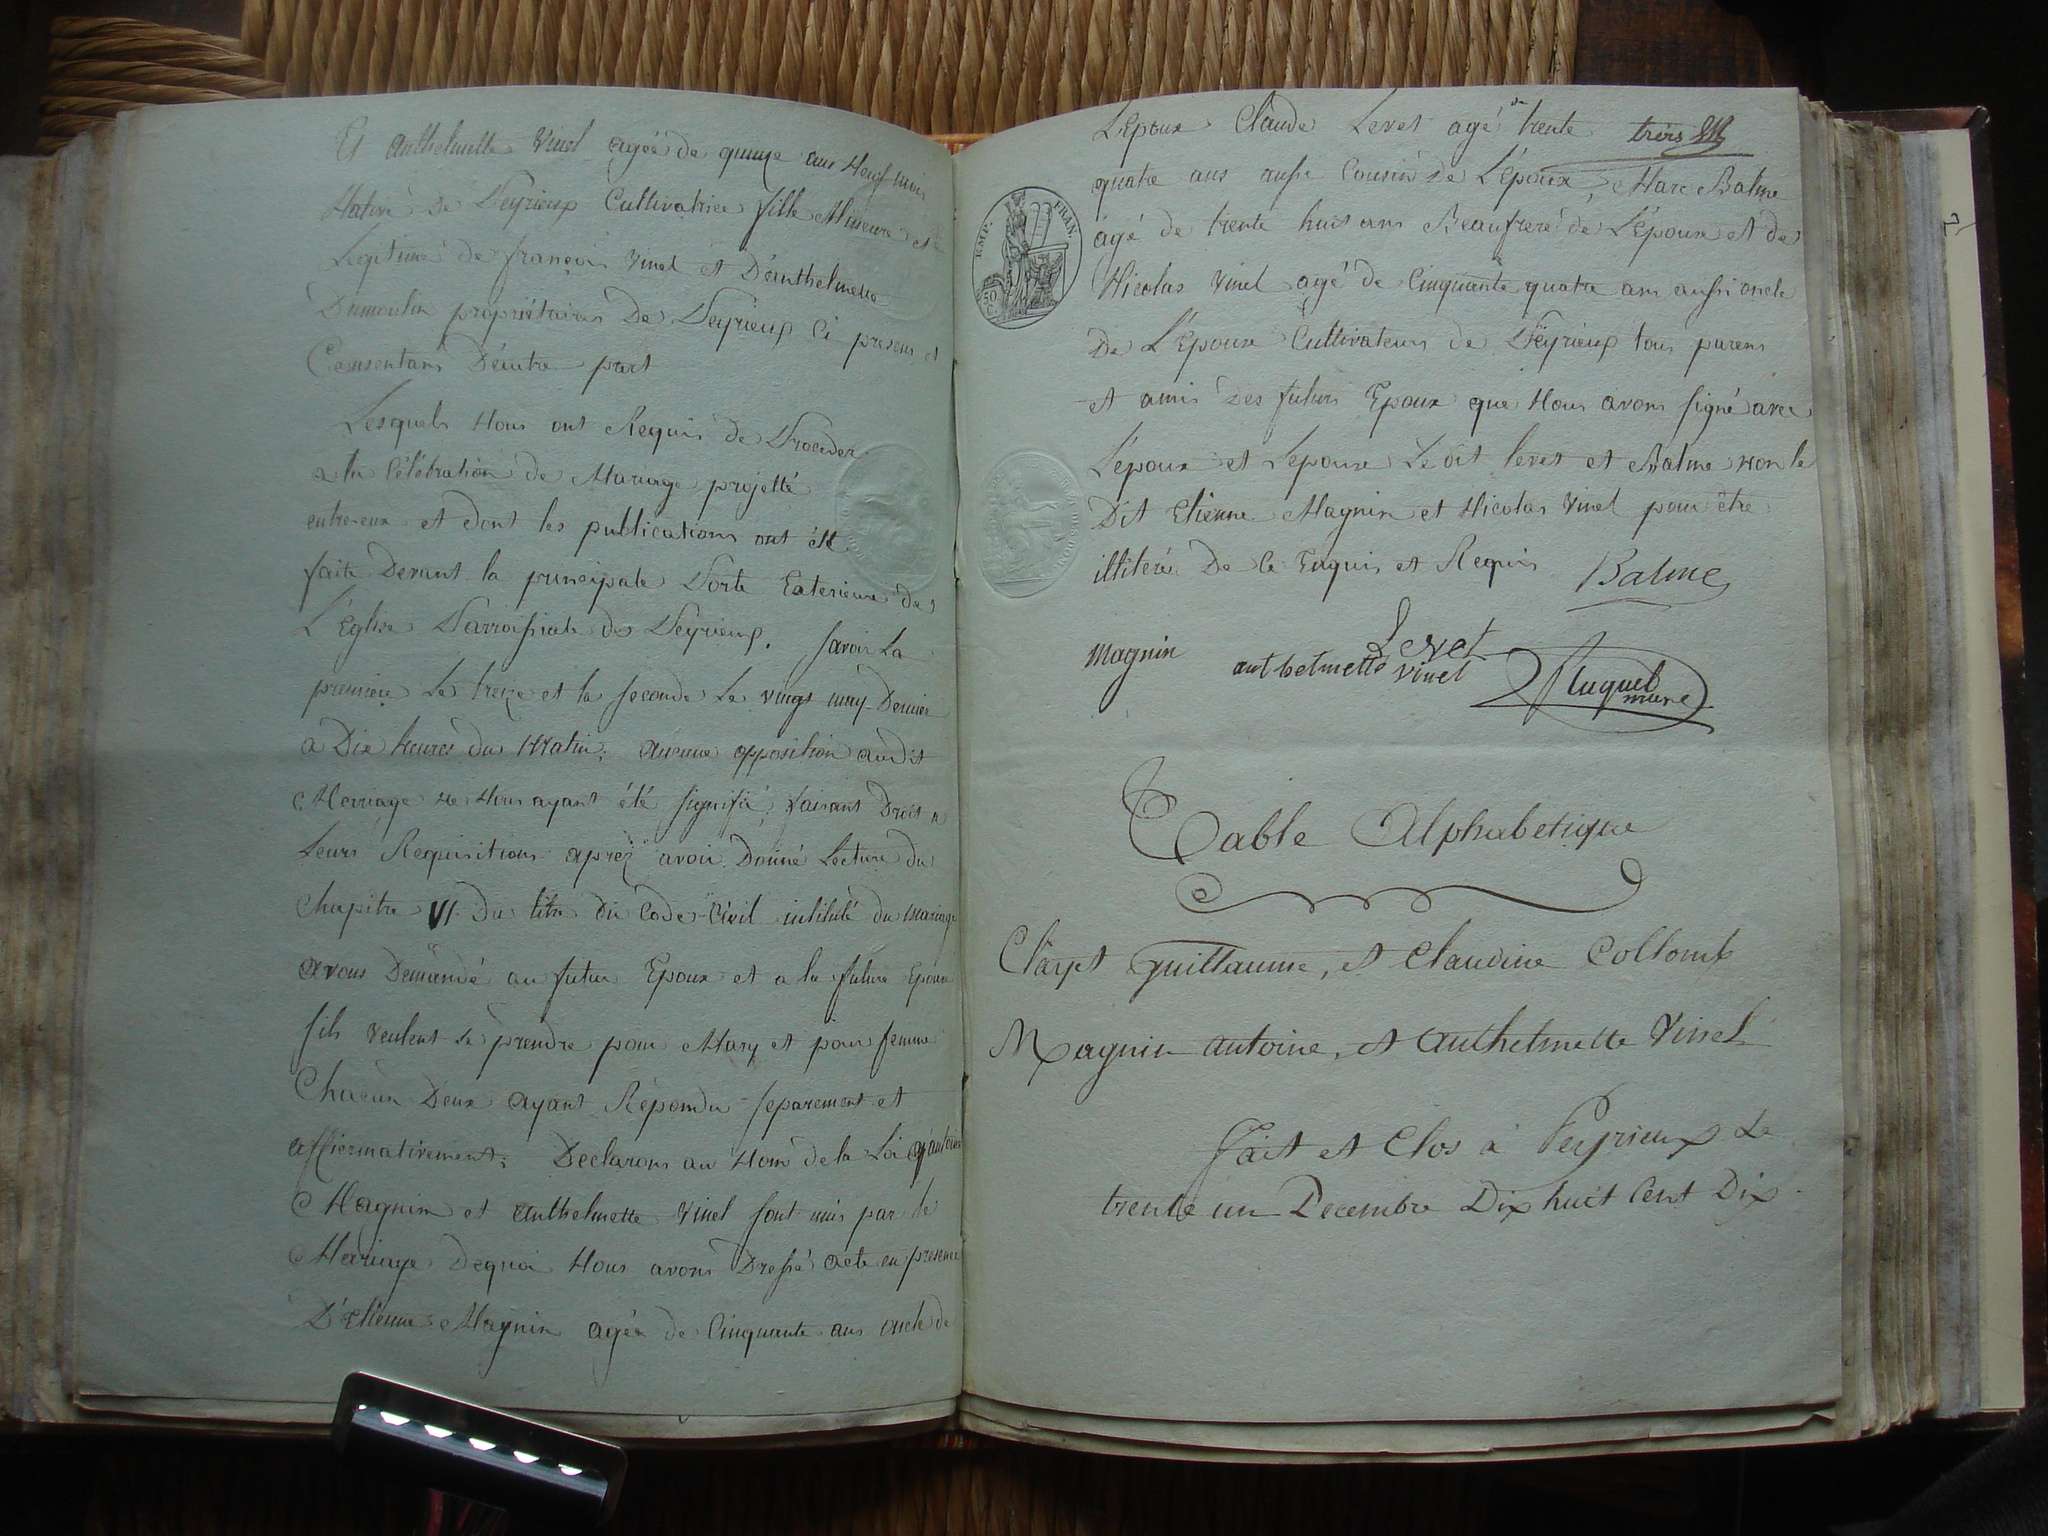 Et anthelmette Vinel agée de quinze ans Neuf mois
Native de Peyrieux Cultivatrice fille Mineure et
Legitime de françois Vinel et D'anthelmette
Dumoulin propriétaires De Peyrieux Ci presens et
Consentans D'autre part
Lesquels Nous ont Requis de Proceder
a la Célébration de Mariage projetté
entre-eux et dont les publications ont été
faite Devant la principale Porte Exterieure de
L'Eglise Parroissiale de Peyrieux. Savoir La
premiere Le treize et la seconde Le vingt may Dernier
a Dix heures du Matin; aucune opposition audit
Mariage Ne Nous ayant été signifié, faisant Droit a
Leurs Requisitions aprèz avoir Donné Lecture du
Chapitre VI Du titre Du Code Civil intitulé du Mariage
avons Demandé au futur Epoux et a la future Epouse
sils veulent se prendre pour Mary et pour femme
Chacun Deux ayant Répondu separement et
affiermativement; Declarons au Nom de la Loi q'antoine
Magnin et anthelmette Vinel sont unis par le
Mariage Dequoi Nous avons Dressé acte en presence
D'Etienne Magnin agée de Cinquante ans oncle de
L'Epoux Claude Levet agé de trente trois
quatre ans aussi Cousin De L'époux, Marc Balme
âgé de trente huit ans Beaufrere de L'épouse et de
Nicolas Vinel agé de Cinquante quatre ans aussi oncle
De L'Epouse Cultivateurs de Peyrieux tous parens
et amis Des futurs Epoux que Nous avons signé avec
L'époux et L'epouse Le dit levet et Balme Non le
Dit Etienne Magnin et Nicolas Vinel pour être
illiteré De Ce Enquis et Requis Balme
TIMP. FRAN.
50 C.
Levet
magnin anthelmette vinel Huguet
maire
Table Alphabetique
Clayet Guillaume, et Claudine Collomb
Magnin antoine, et Anthelmette Vinel
Fait et Clos à Peyrieux Le
trente un Decembre Dix huit Cent Dix